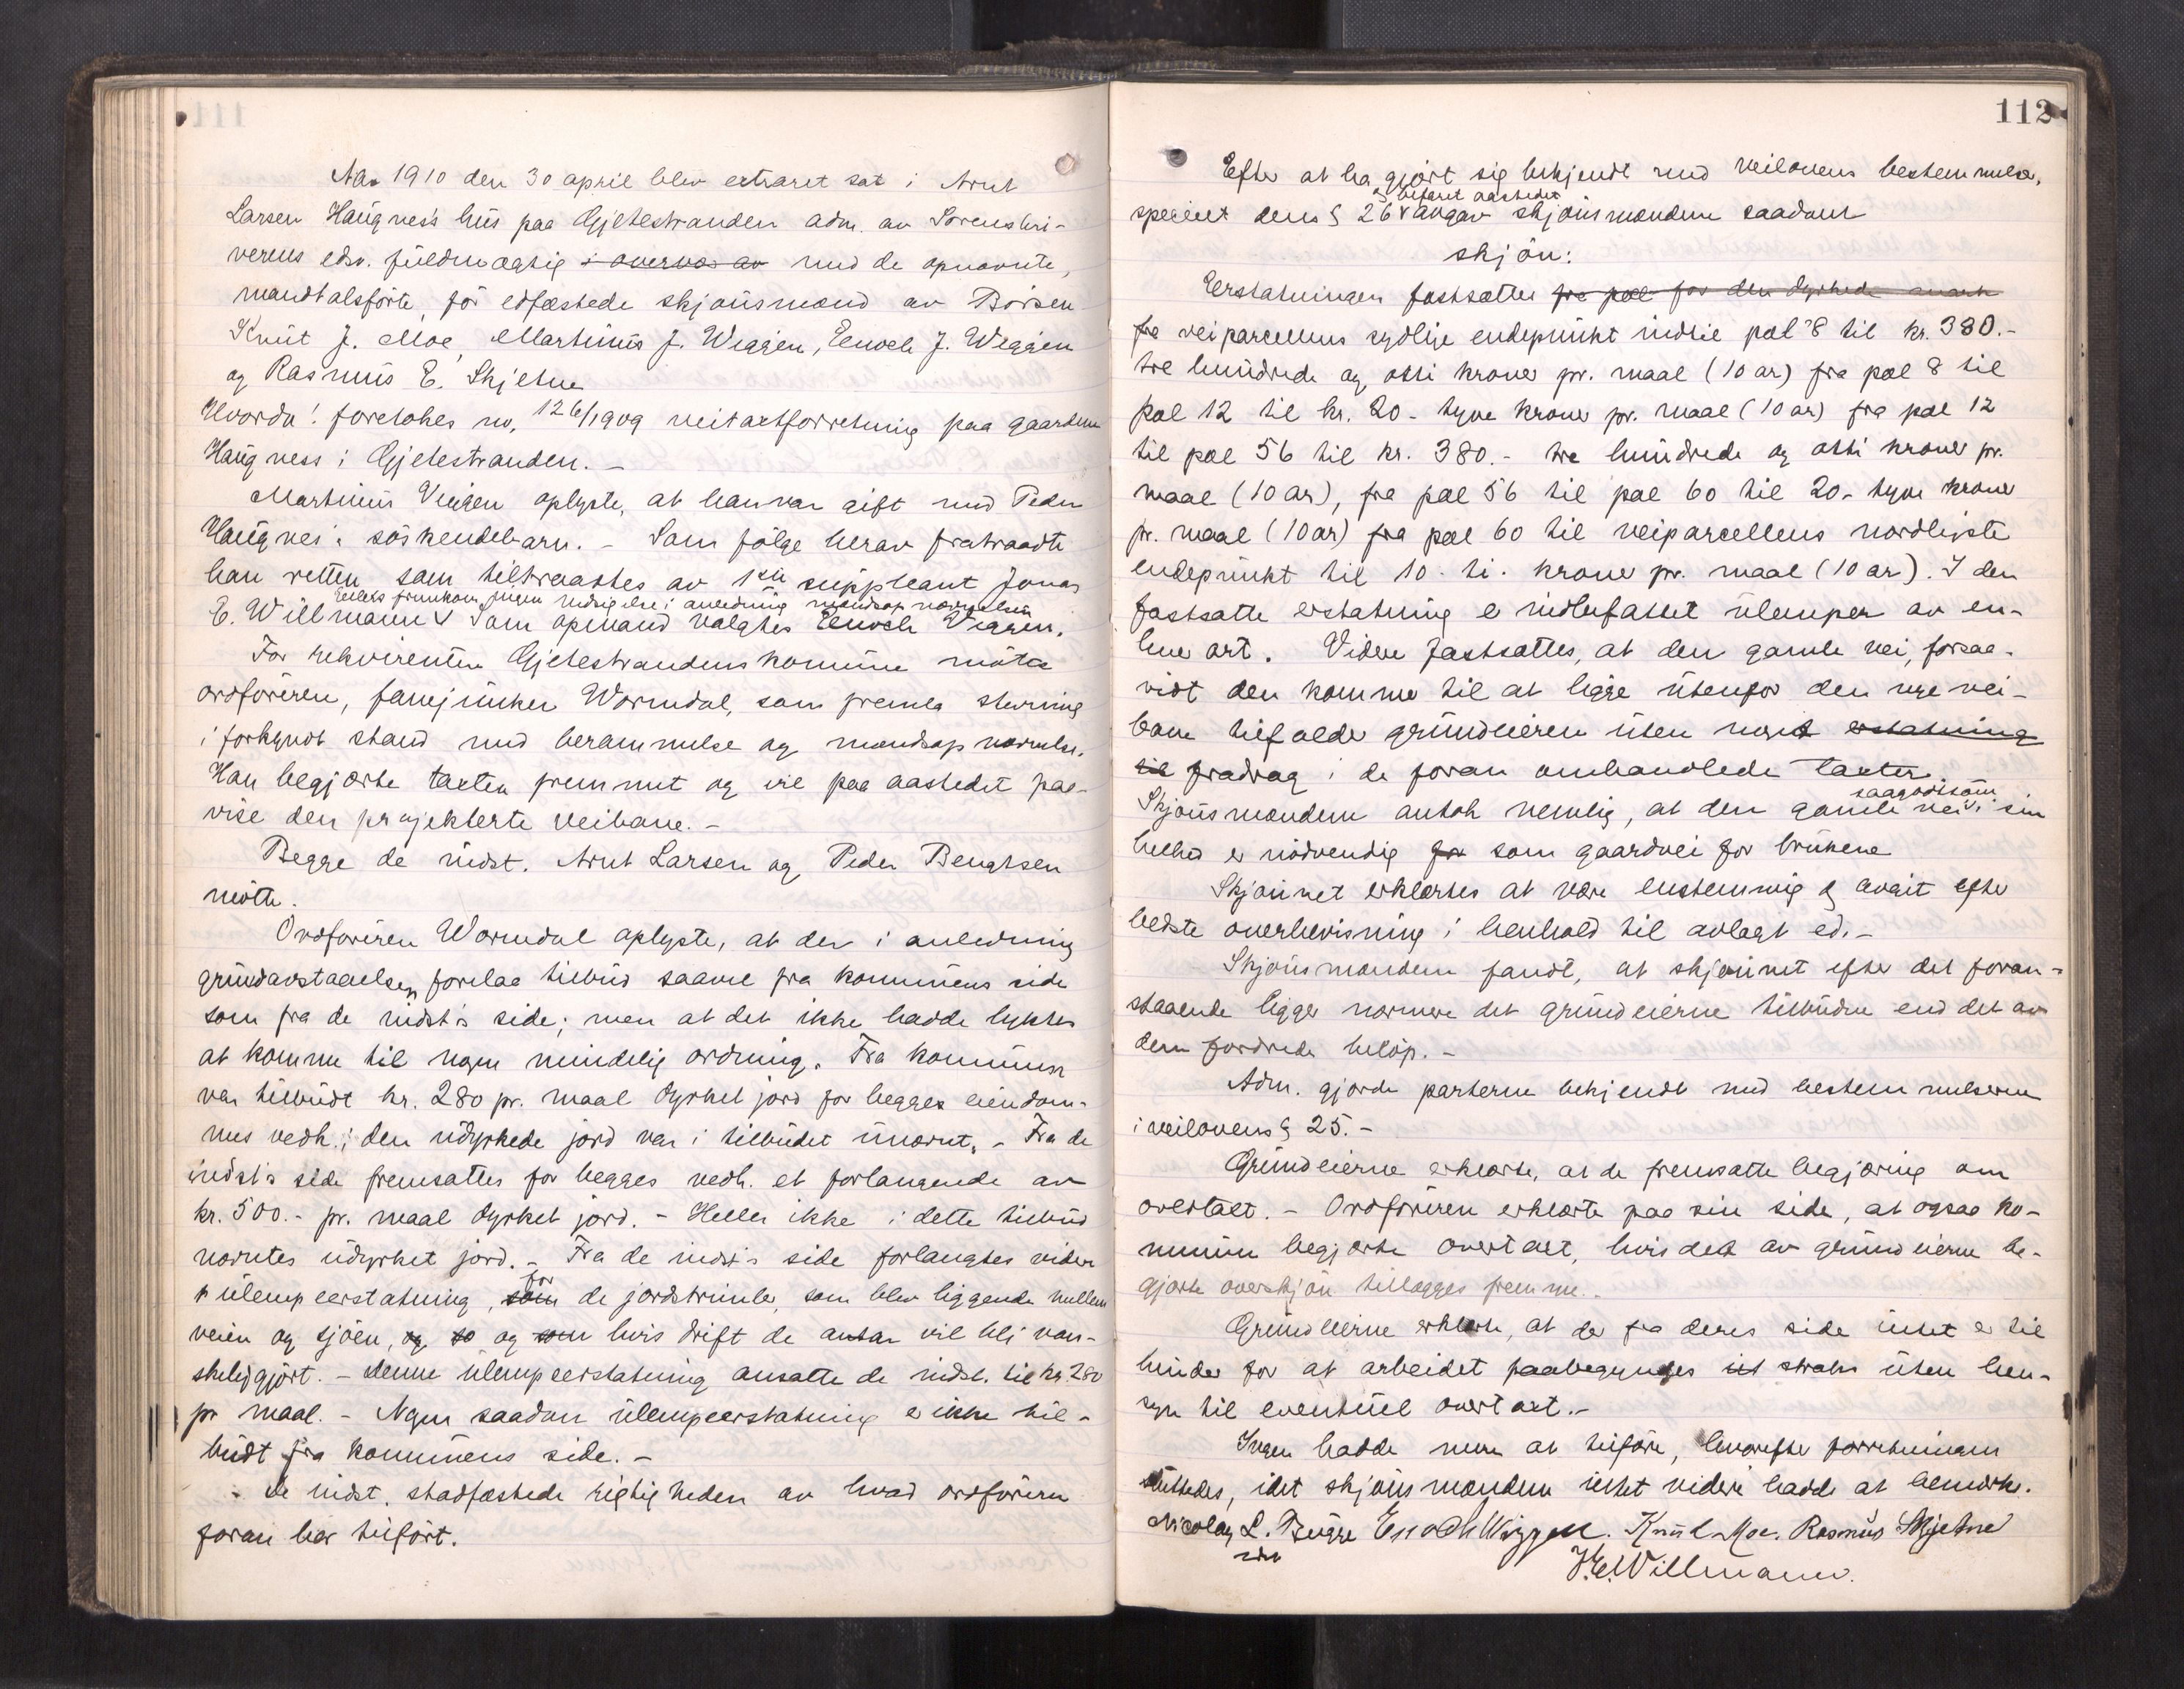 Aar 1910 den 30 april blev extraret sat i Arnt
Larsen Haugness hus paa Gjetestranden adm. av Sorenskri-
verens edsv. fuldmægtig i overvær av med de opnævnte,
mandtalsførte, før edfæstede skjønsmænd av Børsen
Knut J. Moe, Martinus J. Wiggen, Enoch J. Wiggen
og Rasmus E. Skjetne
Hvorda! foretokes no. 126/1909 veitaxtforretning paa gaarden
Haugness i Gjetestranden. -
Martinus Viggen oplyste, at han var gift med Peder
Haugnes's søskendebarn. - Som følge herav fratraadte
han retten, som tiltraadtes av 1ste suppleant Jonas
Ellers fremkom ingen indsigelse i anledning mandsopnævnelsen
E. Willmann v Som opmand valgtes Enoch Viggen.
For rekvirenten Gjetestrandens komune møtte
ordføreren, fanejunker Wormdal, som fremla stevning
i forkyndt stand med berammelse og mandsopnævnelse.
Han begjærte taxten fremmet og vil paa aastedet paa-
vise den projekterte veibane. -
Begge de indst. Arnt Larsen og Peder Bengtsen
møtte.
Ordføreren Wormdal oplyste, at der i anledning
grundavstaaelsen forelaa tilbud saavel fra kommunens side
som fra de indst's side; men at det ikke hadde lykkes
at komme til nogen mindelig ordning. Fra kommunen
var tilbudt kr. 280 pr. maal dyrket jord for begges eiendom-
mes vedk.; den udyrkede jord var i tilbudet unævnt. - Fra de
indst's side fremsattes for begges vedk. et forlangende av
kr. 500.- pr. maal dyrket jord. - Heller ikke i dette tilbud
nævntes udyrket jord. - Fra de indst's side forlangtes videre
for
ulempeerstatning, som de jordstrimler, som blev liggende mellem
veien og sjøen, og so og som hvis drift de antar vil bli van-
skeligjort. - Denne ulempeerstatning ansatte de indst. til kr. 280
pr maal. - Nogen saadan ulempeerstatning er ikke til-
budt fra kommunens side. -
De indst. stadfæstede rigtigheden av hvad ordføreren
foran har tilført.
112
Efter at ha gjørt sig bekjendt med veilovens bestemmelser,
og befaret aastedet
specielt dens § 26 v avgav skjønsmændene saadant
skjøn:
Erstatningen fastsættes fra pæl for den dyrkede mark
fra veiparcellens sydlige endepunkt indtil pæl 8 til kr. 380.-
tre hundrede og otti kroner pr. maal (10 ar) fra pæl 8 til
pæl 12 til kr. 20- tyve kroner pr. maal (10 ar) fra pæl 12
til pæl 56 til kr. 380.- tre hundrede og otti kroner pr.
maal (10 ar), fra pæl 56 til pæl 60 til 20- tyve kroner
pr. maal (10 ar) fra pæl 60 til veiparcellens nordligste
endepunkt til 10 - ti - kroner pr. maal (10 ar). I den
fastsatte erstatning er indbefattet ulemper av en-
hver art. Videre fastsættes, at den gamle vei, forsaa-
vidt den kommer til at ligge utenfor den nye vei-
bane tilfalder grundeieren uten noget erstatning
til fradrag i de foran omhandlede taxter.
saagodtsom
Skjønsmændene antok nemlig, at den gamle vei v i sin
helhed er nødvendig for som gaardvei for brukene
Skjønnet erklærtes at være enstemmig og avgit efter
bedste overbevisning i henhold til avlagt ed. -
Skjønsmændene fandt, at skjønnet efter det foran-
staaende ligger nærmere det grundeierne tilbudne end det av
dem fordrede beløp. -
Adm. gjorde parterne bekjendt med bestemmelserne
i veilovens § 25. -
Grundeierne erklærte, at de fremsatte begjæring om
overtaxt. - Ordføreren erklærte paa sin side, at ogsaa ko-
munen begjærte overtaxt, hvis det av grundeierne be-
gjærte overskjøn tillægges fremme. -
Grundeierne erklærte, at der fra deres side intet er til
hinder for at arbeidet paabegyndes ist straks uten hen-
syn til eventuel overtaxt. -
Ingen hadde mere at tilføre, hvorefter forretningen
sluttedes, idet skjønsmændene intet videre hadde at bemærke.
Nicolay L. Bugge Enoch Wiggen. Knut Moe. Rasmus Skjetne
J. E. Willmann.